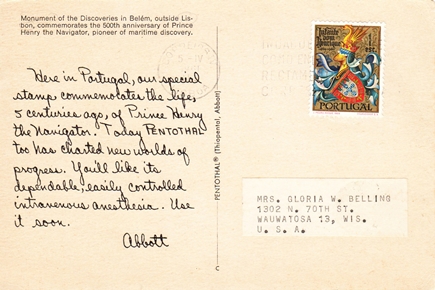 Monument of the Discoveries in Belém, outside Lis-
bon, commemorates the 500th anniversary of Prince
Henry the Navigator, pioneer of maritime discovery.
Here in Portugal, our special
stamp commemorates the life,
5 centuries ago, of Prince Henry
the Navigator. Today PENTOTHAL
too has charted new worlds of
progress. You'll like its
dependable, easily controlled
intravenous anesthesia. Use
it soon.
Abbott
PENTOTHAL® (Thiopental, Abbott)
C
Infante
dom
Henrique
1
ESC.
PORTUGAL
MRS. GLORIA W. BELLING
1302 N. 70TH ST.
WAUWATOSA 13, WIS.
U. S. A.